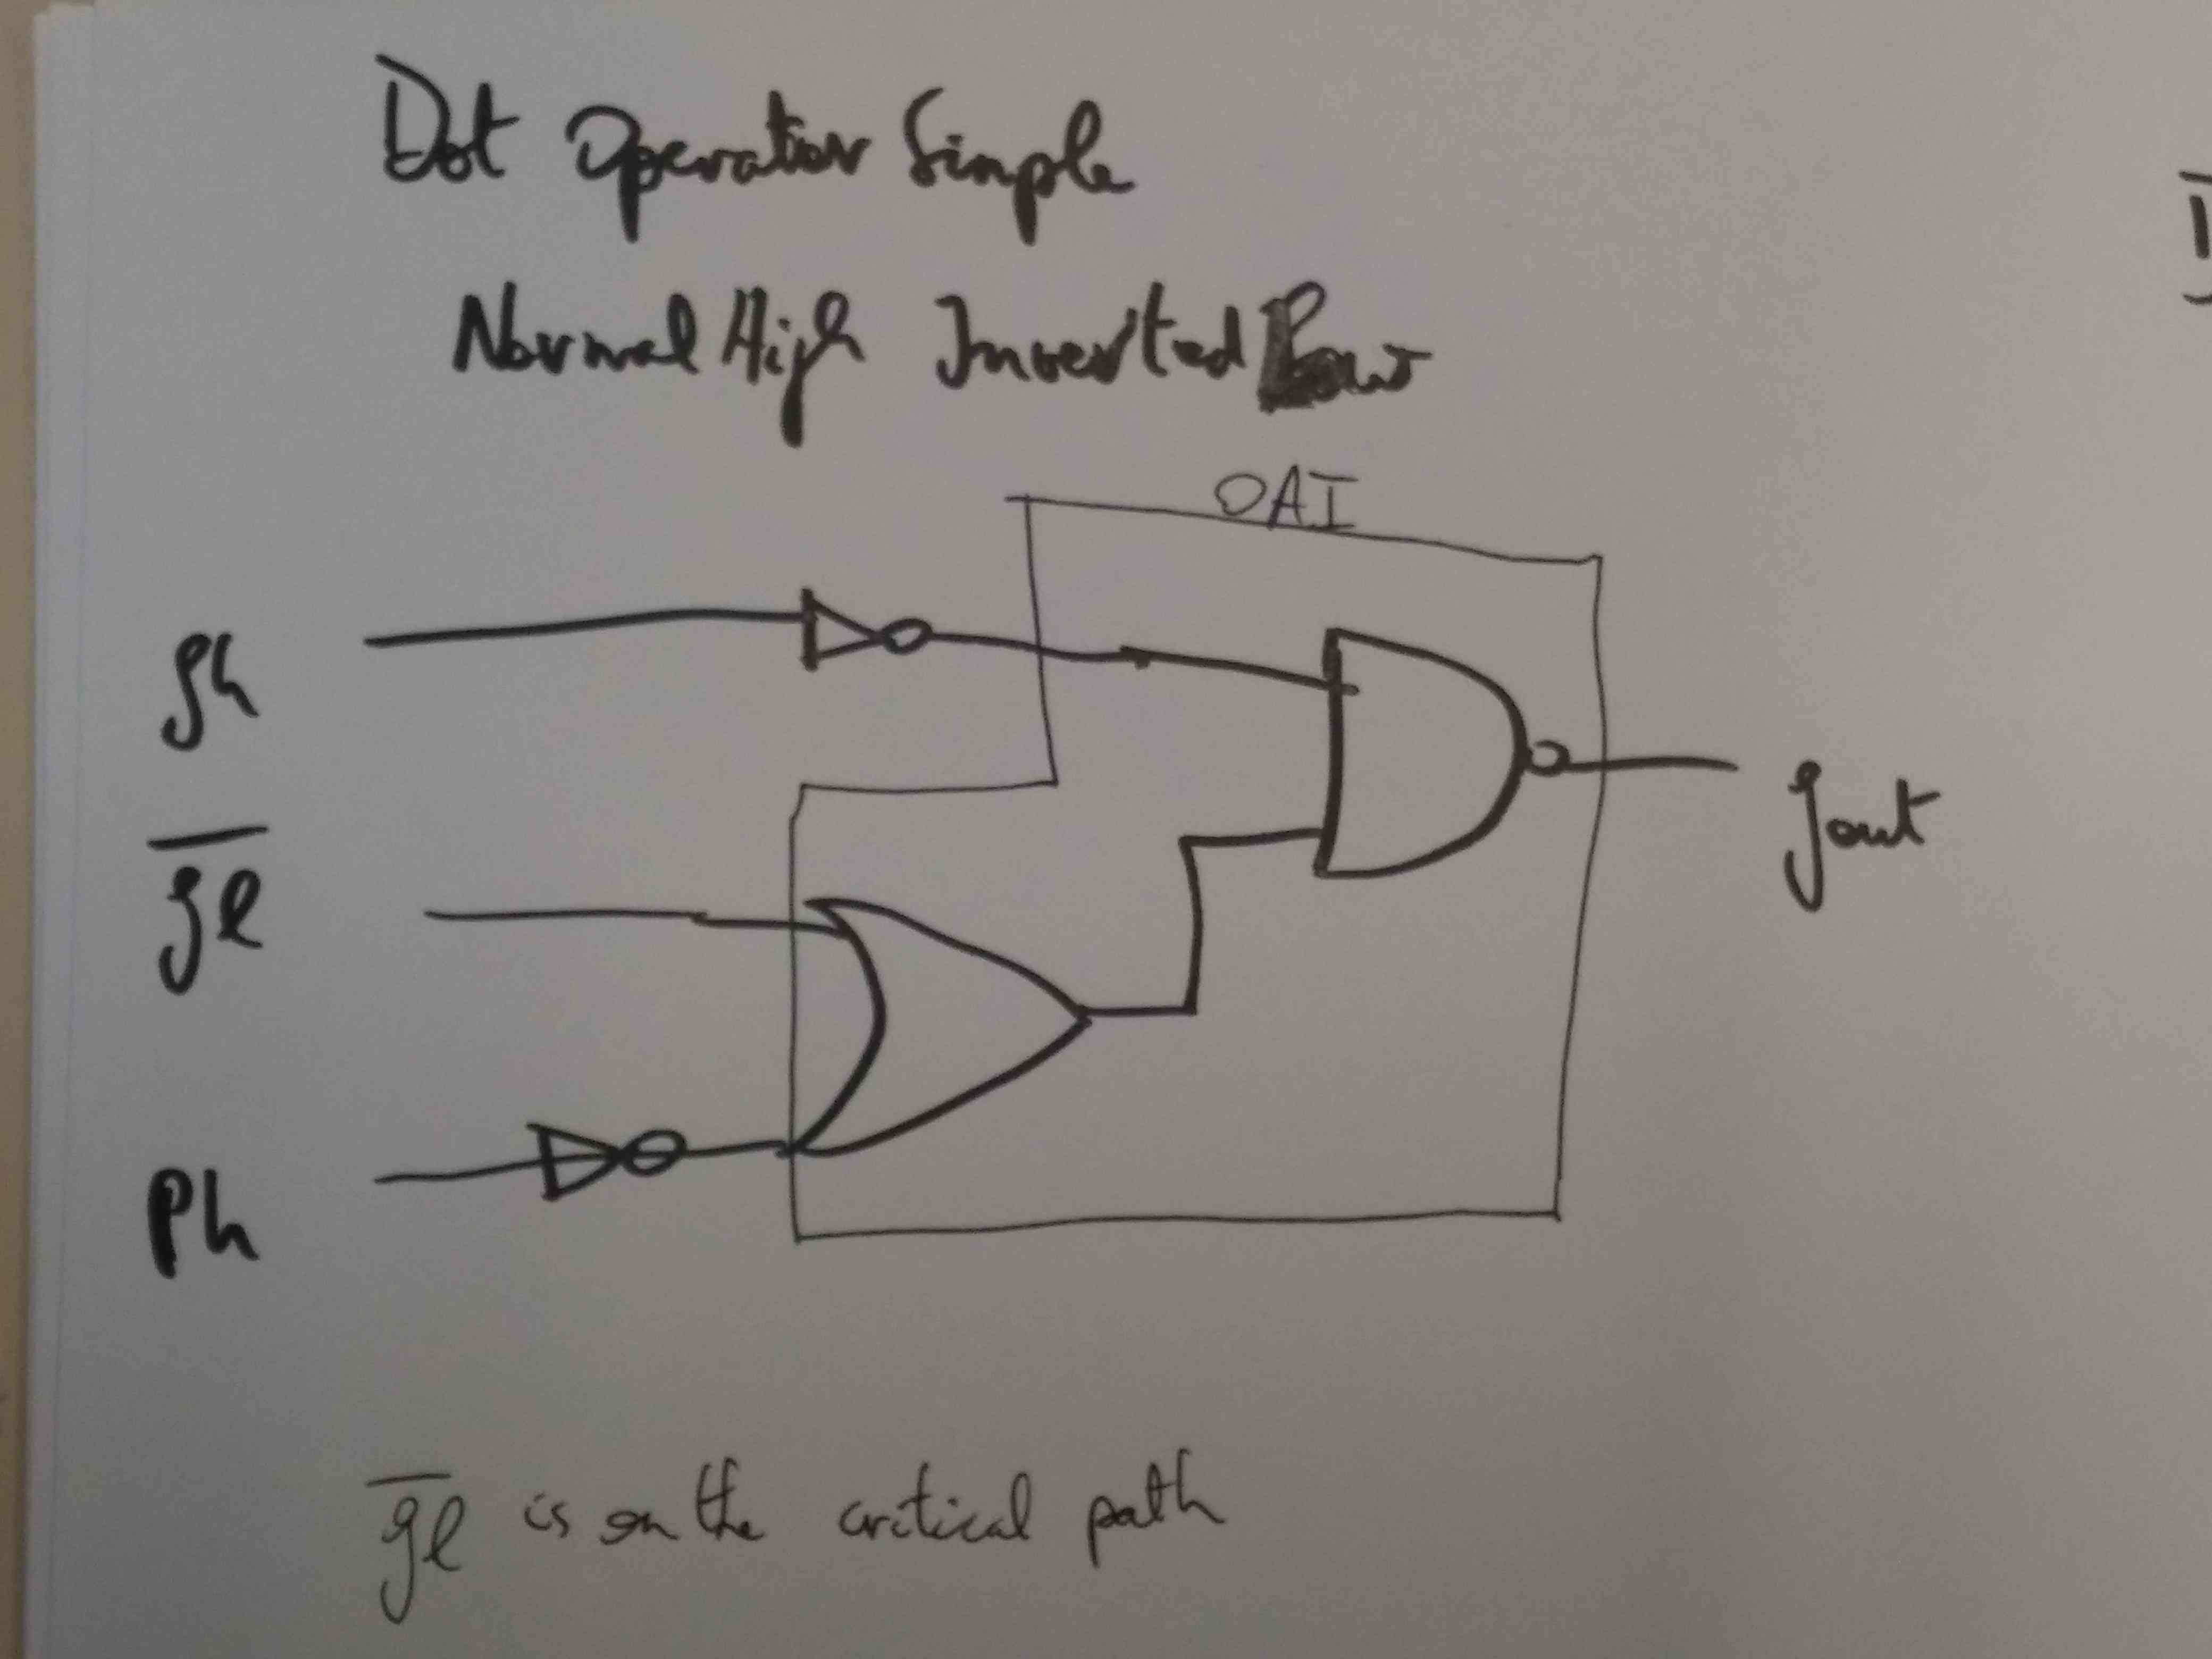 Dot Operation Simple
Normal High Inverted Low
OAI
gh
g̅l̅
gout
Ph
g̅l̅ is on the critical path